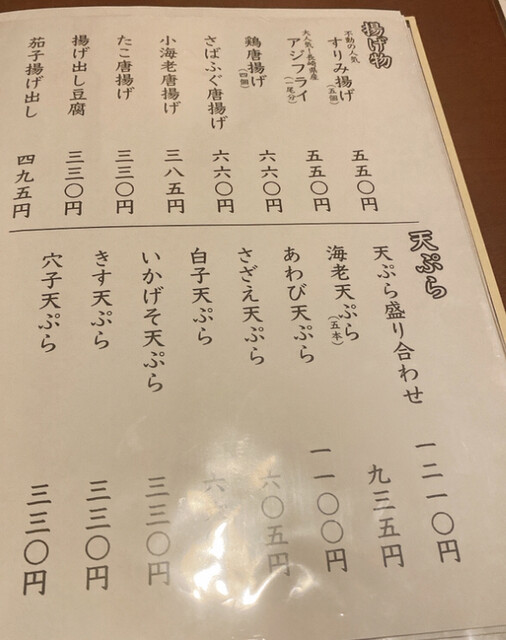 揚げ物
不動の人気
すりみ揚げ(五個) 五五〇円
大人気!長崎県産
アジフライ(一尾分) 五五〇円
鶏唐揚げ(四個) 六六〇円
さばふぐ唐揚げ 六六〇円
小海老唐揚げ 三八五円
たこ唐揚げ 三三〇円
揚げ出し豆腐 三三〇円
茄子揚げ出し 四九五円
天ぷら
天ぷら盛り合わせ 一二一〇円
海老天ぷら(五本) 九三五円
あわび天ぷら 一一〇〇円
さざえ天ぷら 六〇五円
白子天ぷら
いかげそ天ぷら 三三〇円
きす天ぷら 三三〇円
穴子天ぷら 三三〇円